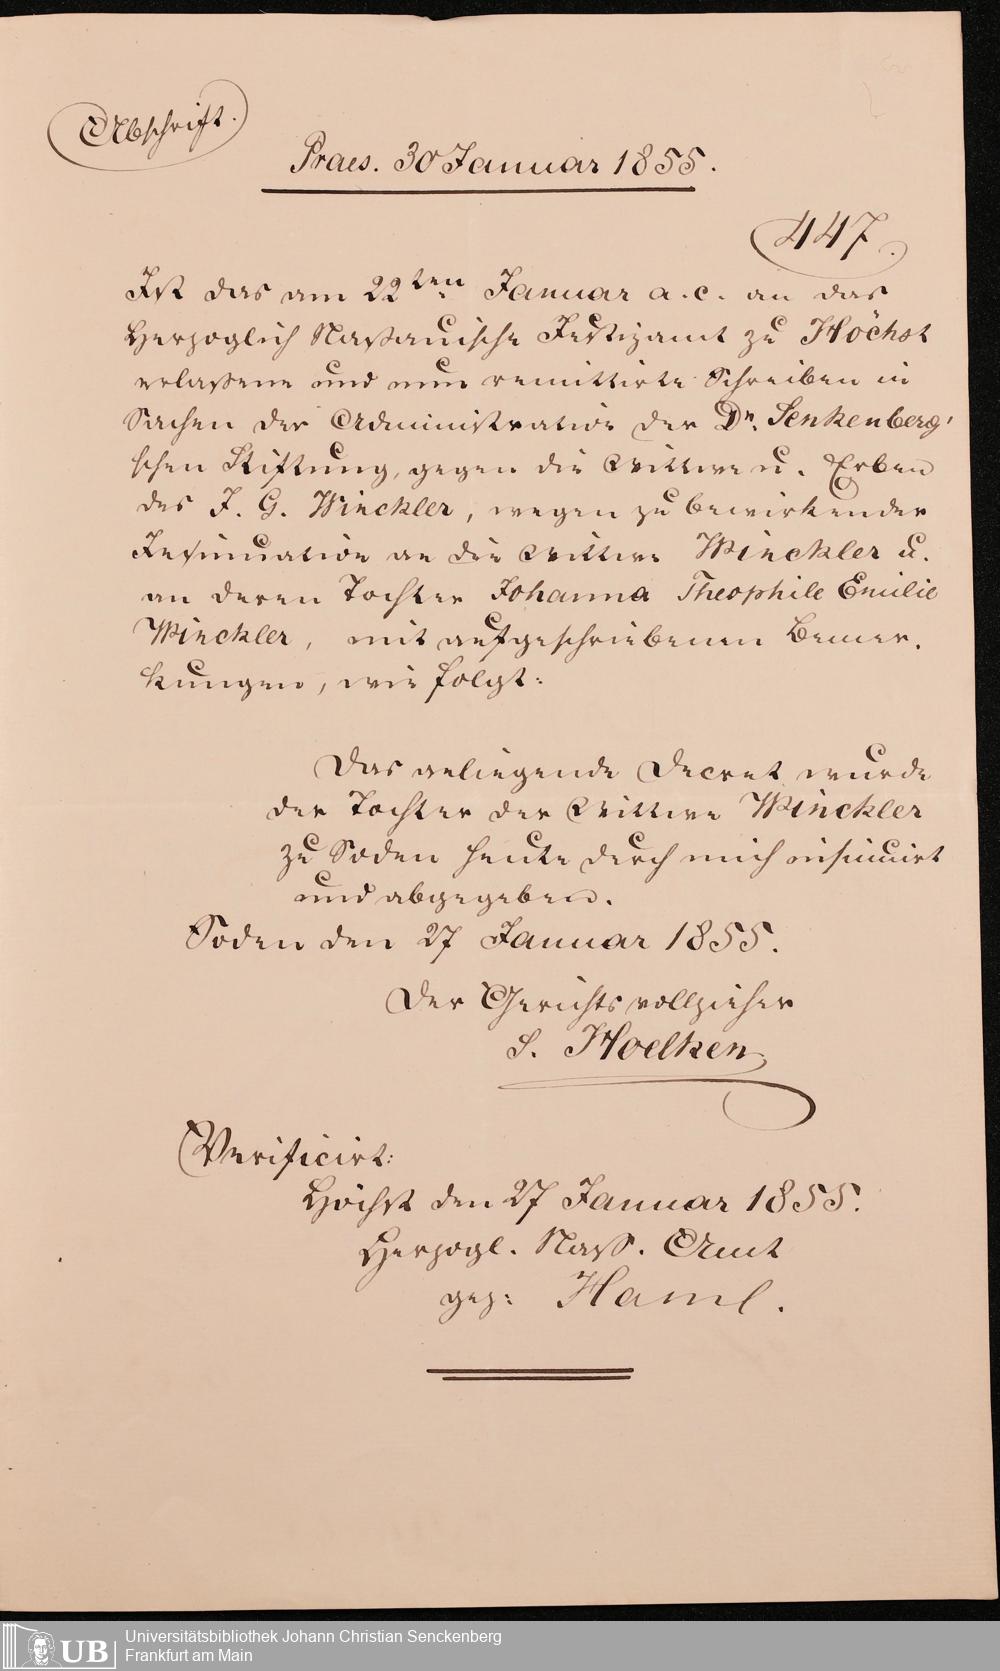 Abschrift.
Praes. 30 Januar 1855.
447.
Ist das am 22ten Januar a. c. an das
Herzoglich Naßauische Justizamt zu Höchst
erlaßene und nun remittirte Schreiben in
Sachen der Administration der Dr. Senkenberg'
schen Stiftung, gegen die Wittwe u. Erben
des J. G. Winckler, wegen zu bewirkender
Insinuation an die Wittwe Winckler u.
an deren Tochter Johanna Theophile Emilie
Winckler, mit aufgeschriebenen Bemer-
kungen, wie folgt:
Das anliegende Decret wurde
der Tochter der Wittwe Winckler
zu Soden heute durch mich insinuirt
und abgegeben.
Soden den 27 Januar 1855.
Der Gerichtsvollzieher
S. Hoelken
Verificirt:
Höchst den 27 Januar 1855.
Herzogl. Nass. Amt
gez: Haml.
UB
Universitätsbibliothek Johann Christian Senckenberg
Frankfurt am Main